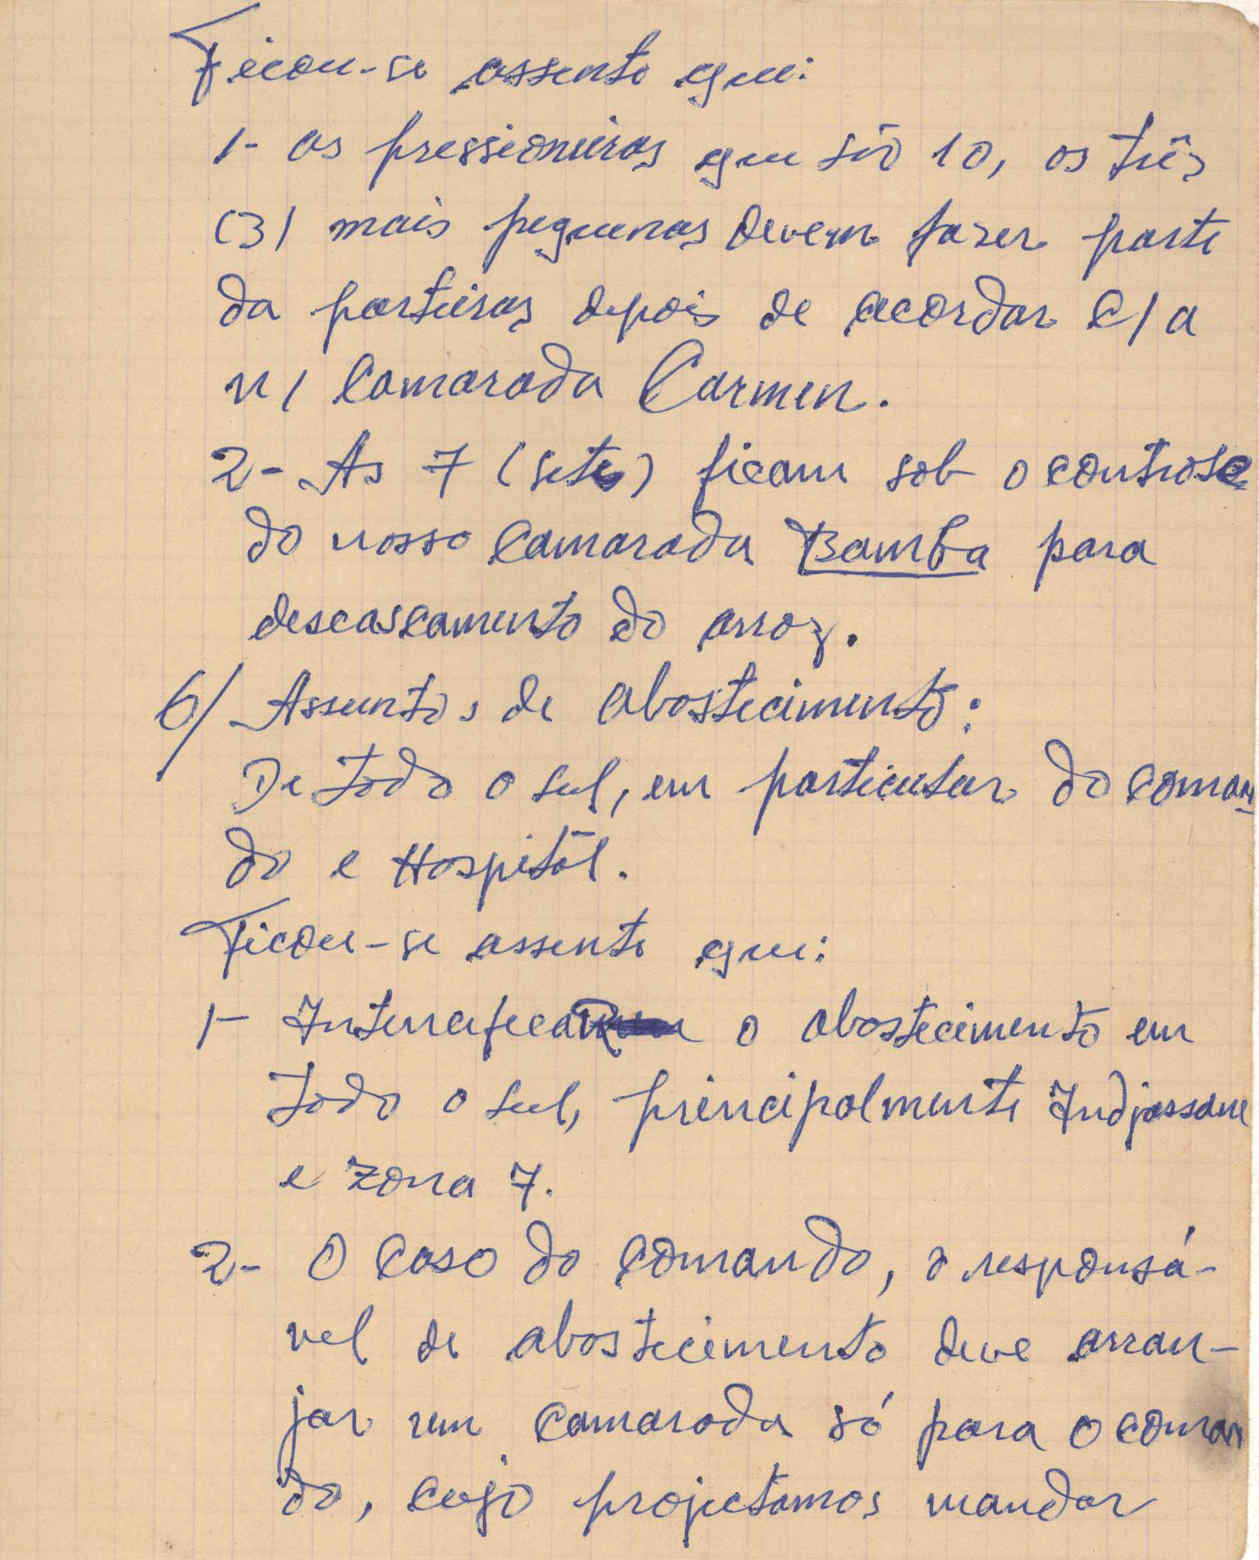 Ficou-se assente que:
1- as pressioneiras que são 10, as três
(3) mais pequenas devem fazer parte
da parteiras depois de acordar c/ a
n/ Camarada Carmen.
2- As 7 (sete) ficam sob o controle
do nosso Camarada Bamba para
descascamento do arroz.
6/ Assuntos de abastecimento:
De todo o sul, em particular do coman
do e Hospitál.
Ficou-se assente que:
1- Intensificar o abastecimento em
todo o sul, principalmente Indjassane
e zona 7.
2- O caso do comando, o responsá-
vel de abastecimento deve arran-
jar um camarada só para o coman
do, cujo projectamos mandar